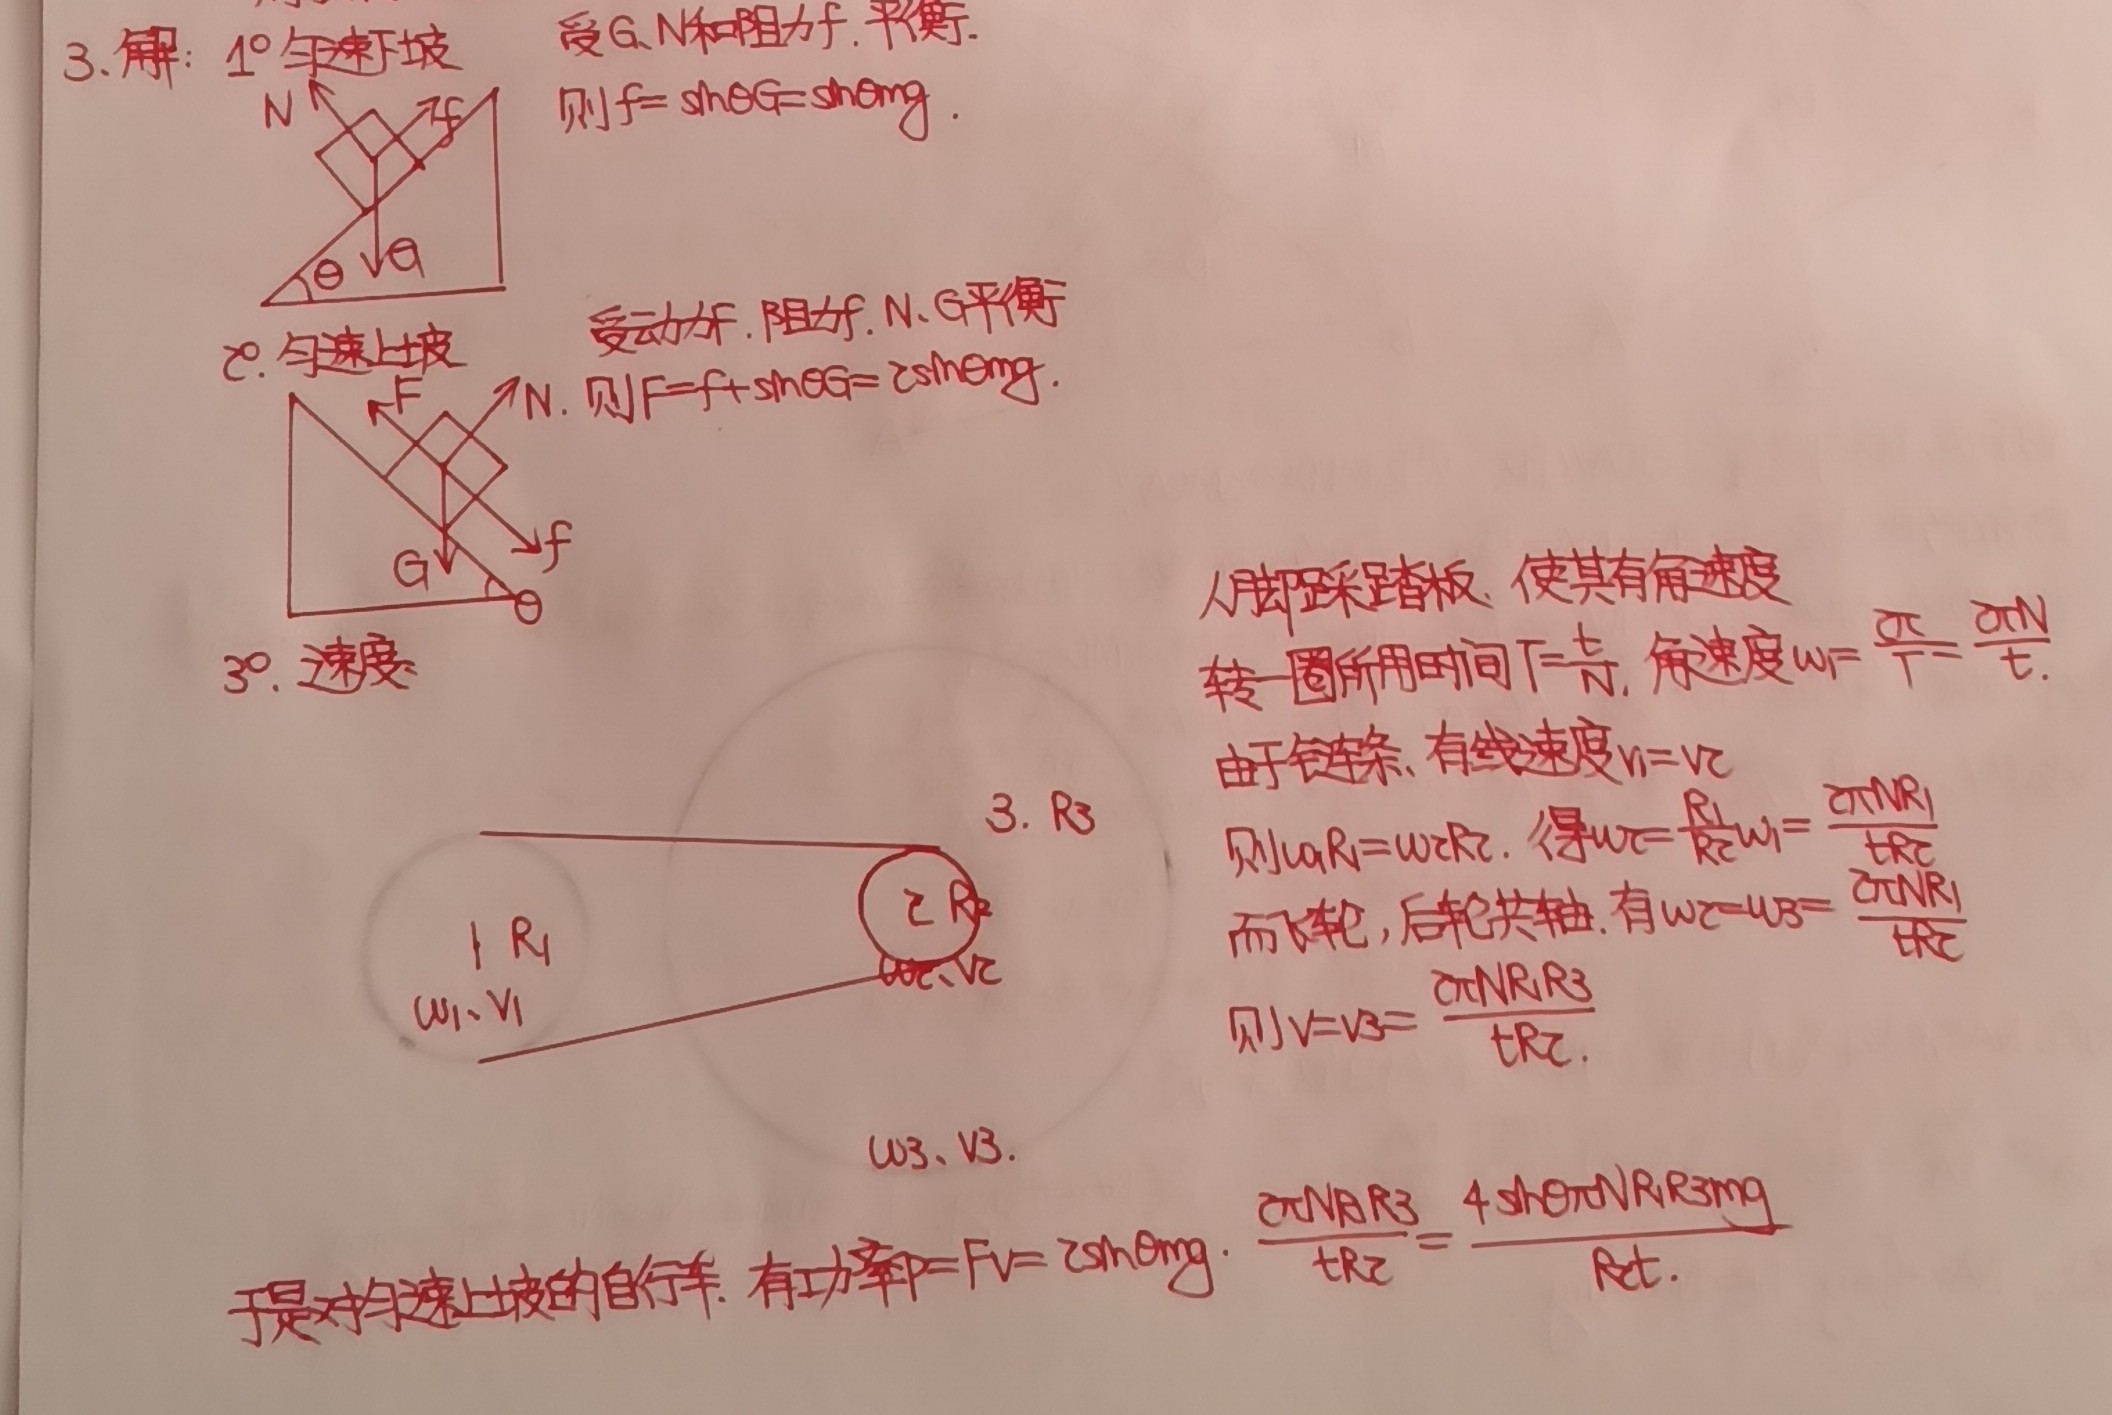 3.解: 1° 匀速下坡
受G、N和阻力f.平衡.
N
f
则f=sinθG=sinθmg.
θ
G
2°.匀速上坡
受动力F.阻力f.N、G平衡
F
N.
则F=f+sinθG=2sinθmg.
G
f
θ
3°.速度:
人脚踩踏板、使其有角速度
转一圈所用时间T=t/N. 角速度ω1=2π/T=2πN/t.
由于链条、有线速度v1=v2
则ω1R1=ω2R2. 得ω2=R1/R2 ω1=2πNR1/tR2
而飞轮,后轮共轴.有ω2=ω3=2πNR1/tR2
则v=v3=2πNR1R3/tR2.
3. R3
2 R2
ω2、v2
1 R1
ω1、v1
ω3、v3.
于是对匀速上坡的自行车.有功率P=Fv=2sinθmg·2πNR1R3/tR2=4sinθπNR1R3mg/R2t.